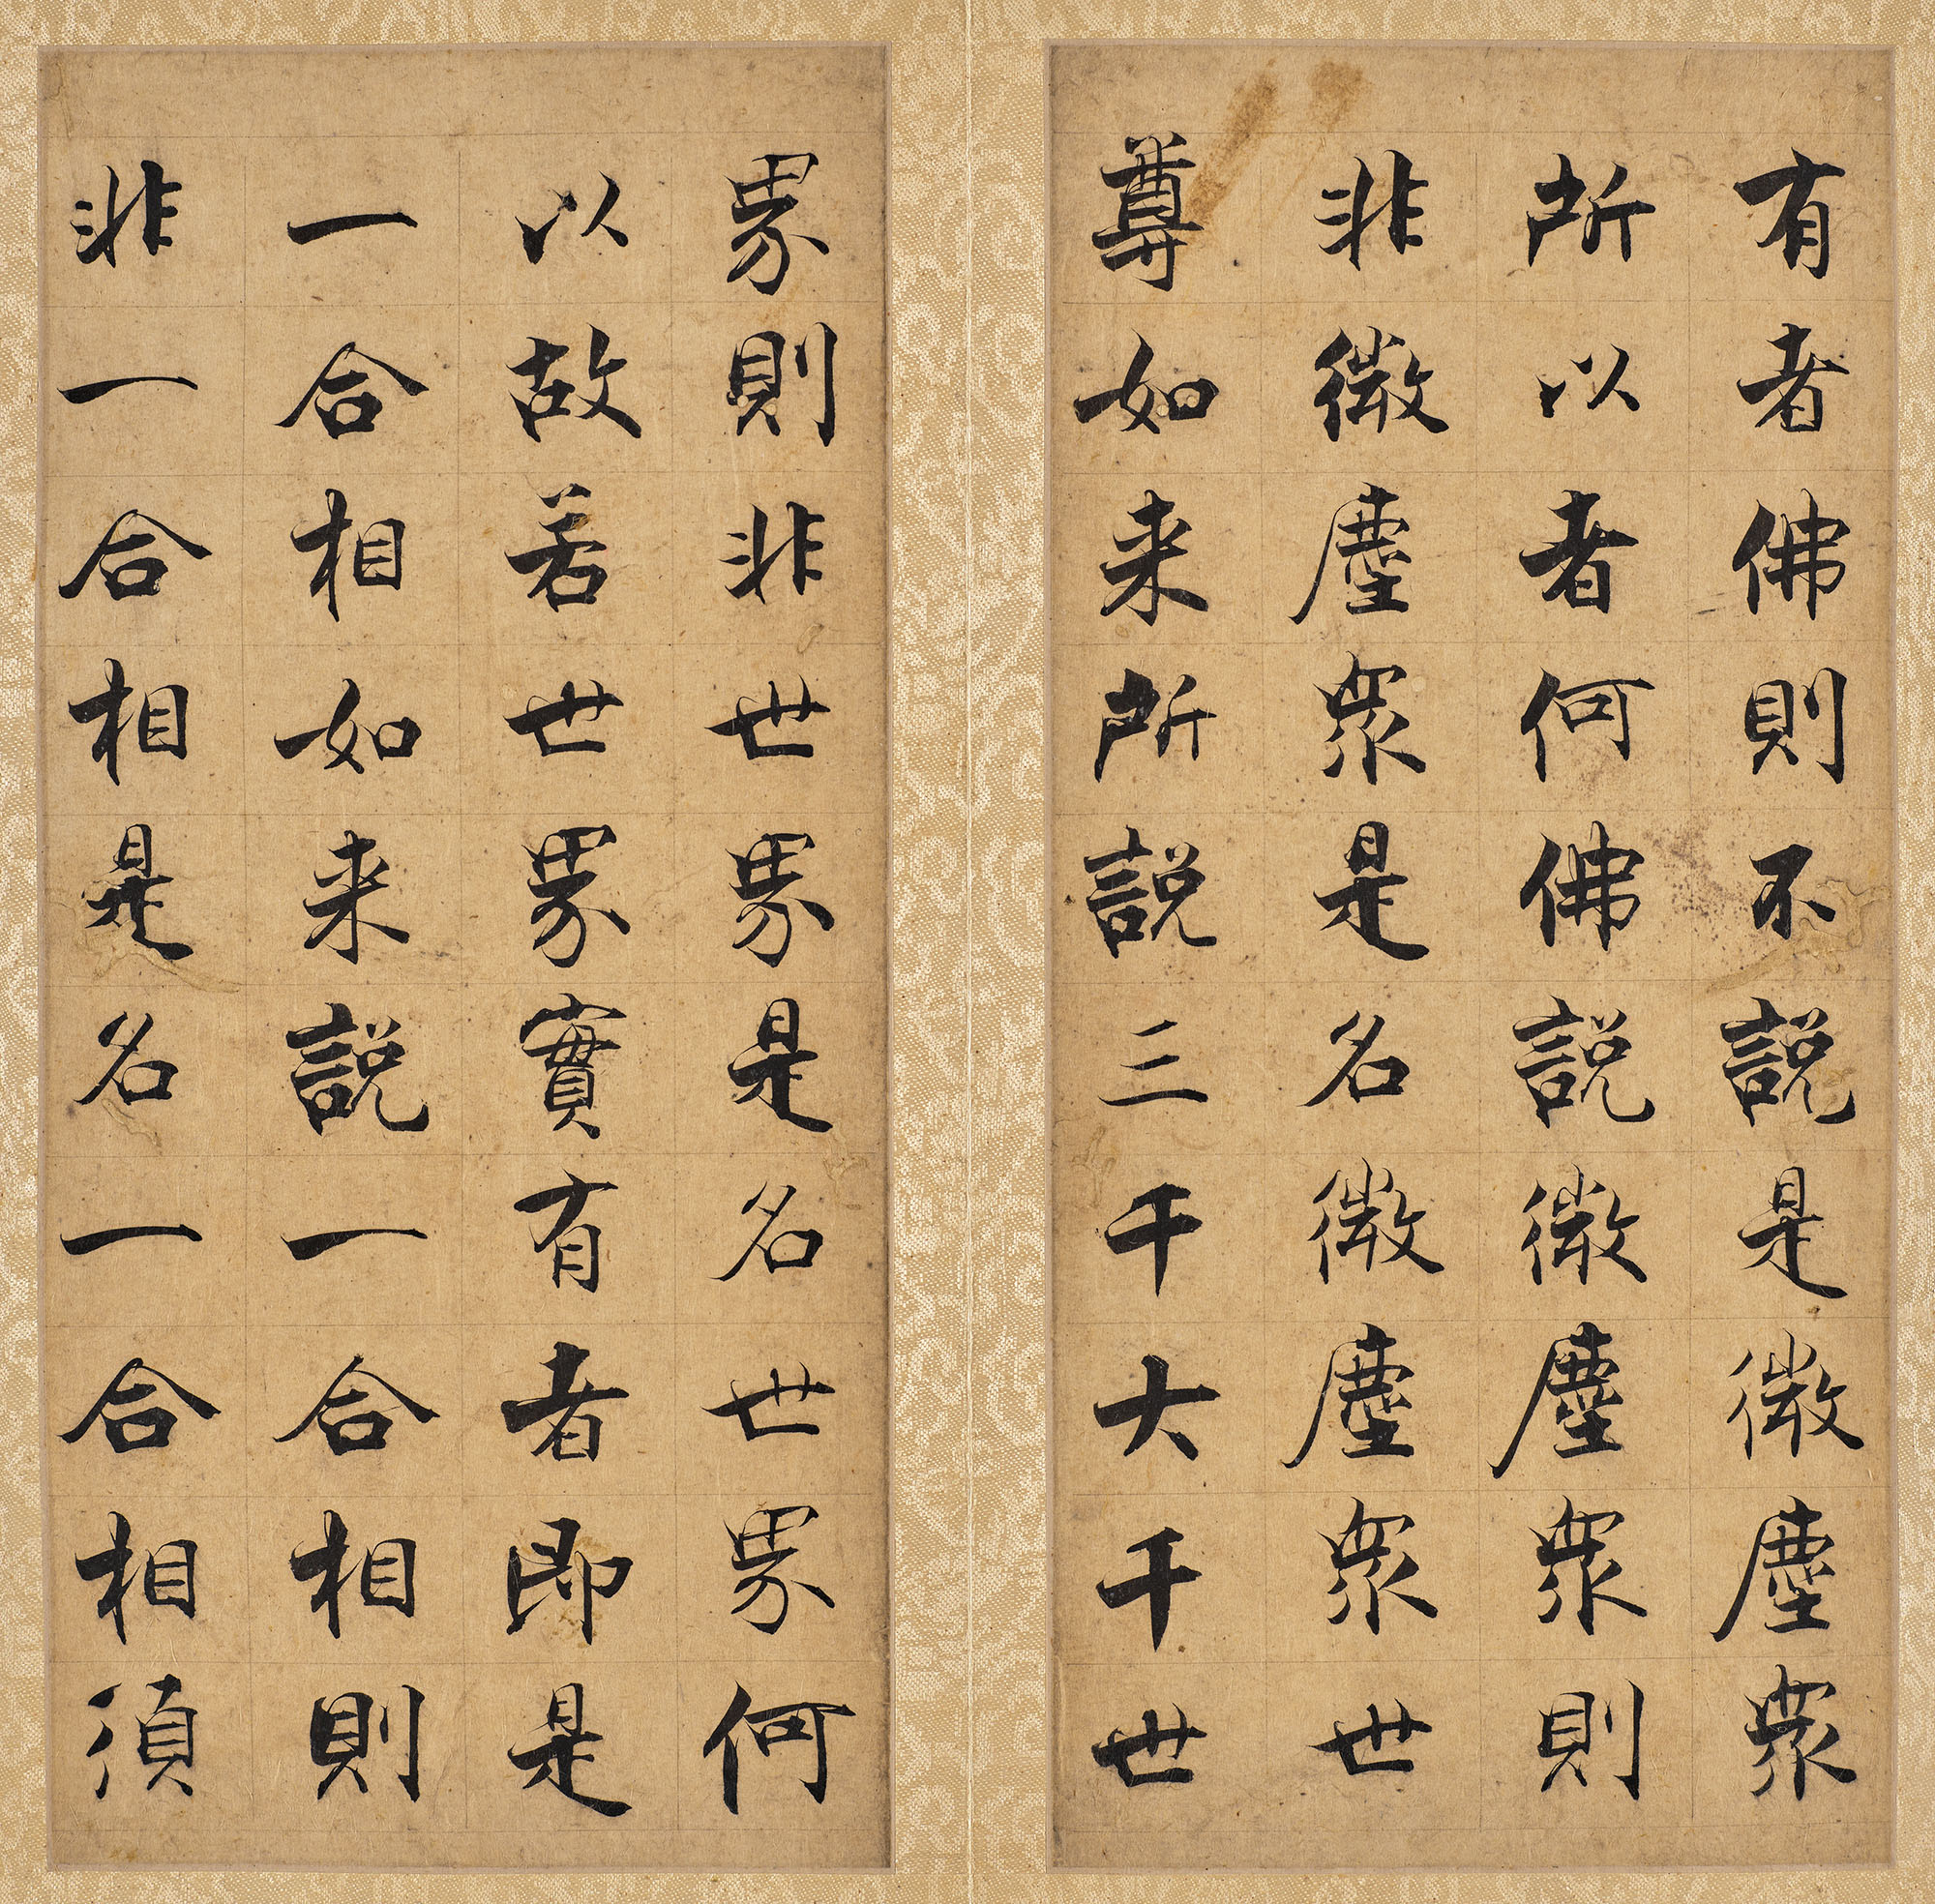 有者佛則不説是微塵衆
所以者何佛説微塵衆則
非微塵衆是名微塵衆世
尊如来所説三千大千世
界則非世界是名世界何
以故若世界實有者即是
一合相如来説一合相則
非一合相是名一合相須